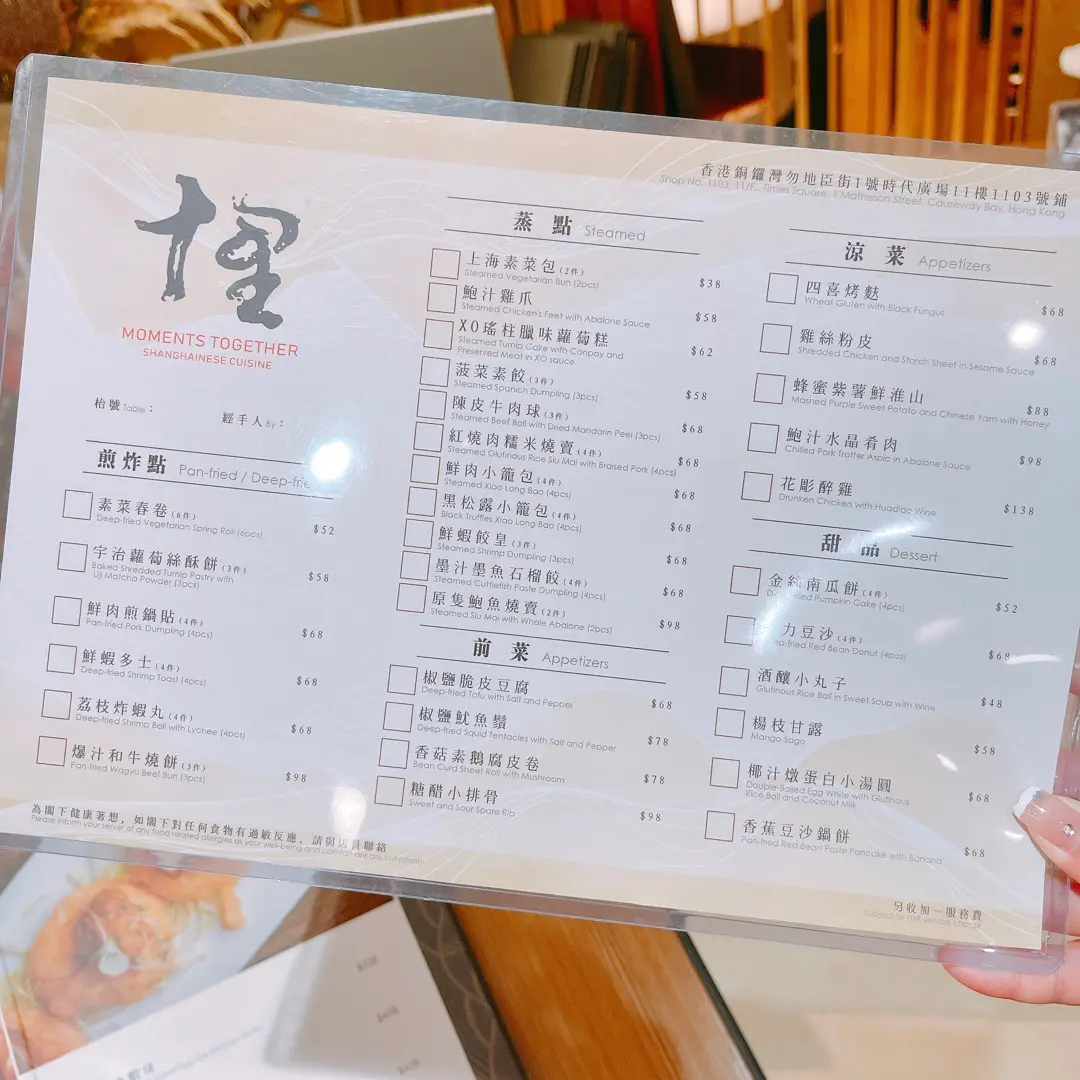 香港銅鑼灣勿地臣街1號時代廣場11樓1103號鋪
Shop No. 1103, 11/F., Times Square, 1 Matheson Street, Causeway Bay, Hong Kong
MOMENTS TOGETHER
SHANGHAINESE CUISINE
枱號 Table :
經手人 By :
煎炸點 Pan-fried / Deep-frie
素菜春卷 (6件)
Deep-fried Vegetarian Spring Roll (6pcs) $52
宇治蘿蔔絲酥餅 (3件)
Baked Shredded Turnip Pastry with
Uji Matcha Powder (3pcs) $58
鮮肉煎鍋貼 (4件)
Pan-fried Pork Dumpling (4pcs) $68
鮮蝦多士 (4件)
Deep-fried Shrimp Toast (4pcs) $68
荔枝炸蝦丸 (4件)
Deep-fried Shrimp Ball with Lychee (4pcs) $68
爆汁和牛燒餅 (3件)
Pan-fried Wagyu Beef Bun (3pcs) $98
蒸點 Steamed
上海素菜包 (2件)
Steamed Vegetarian Bun (2pcs) $38
鮑汁雞爪
Steamed Chicken's Feet with Abalone Sauce $58
XO瑤柱臘味蘿蔔糕
Steamed Turnip Cake with Conpoy and
Preserved Meat in XO sauce $62
菠菜素餃 (3件)
Steamed Spanich Dumpling (3pcs) $58
陳皮牛肉球 (3件)
Steamed Beef Ball with Dried Mandarin Peel (3pcs) $68
紅燒肉糯米燒賣 (4件)
Steamed Glutinous Rice Siu Mai with Braised Pork (4pcs) $68
鮮肉小籠包 (4件)
Steamed Xiao Long Bao (4pcs) $68
黑松露小籠包 (4件)
Black Truffles Xiao Long Bao (4pcs) $68
鮮蝦餃皇 (3件)
Steamed Shrimp Dumpling (3pcs) $68
墨汁墨魚石榴餃 (4件)
Steamed Cuttlefish Paste Dumpling (4pcs) $68
原隻鮑魚燒賣 (2件)
Steamed Siu Mai with Whole Abalone (2pcs) $98
前菜 Appetizers
椒鹽脆皮豆腐
Deep-fried Tofu with Salt and Pepper $68
椒鹽魷魚鬚
Deep-fried Squid Tentacles with Salt and Pepper $78
香菇素鵝腐皮卷
Bean Curd Sheet Roll with Mushroom $78
糖醋小排骨
Sweet and Sour Spare Rib $98
涼菜 Appetizers
四喜烤麩
Wheat Gluten with Black Fungus $68
雞絲粉皮
Shredded Chicken and Starch Sheet in Sesame Sauce $68
蜂蜜紫薯鮮淮山
Mashed Purple Sweet Potato and Chinese Yam with Honey $88
鮑汁水晶肴肉
Chilled Pork Trotter Aspic in Abalone Sauce $98
花彫醉雞
Drunken Chicken with Huadiao Wine $138
甜品 Dessert
金絲南瓜餅 (4件)
Deep-fried Pumpkin Cake (4pcs) $52
力豆沙 (4件)
ep-fried Red Bean Donut (4pcs) $68
酒釀小丸子
Glutinous Rice Ball in Sweet Soup with Wine $48
楊枝甘露
Mango Sago $58
椰汁燉蛋白小湯圓
Double-Boiled Egg While with Glutinous
Rice Ball and Coconut Milk $68
香蕉豆沙鍋餅
Pan-fried Red Bean Paste Pancake with Banana $68
為閣下健康著想，如閣下對任何食物有過敏反應，請與店員聯絡
Please inform your server of any food related allergies as your well-being and comfort are our priority
另收加一服務費
Subject to 10% service charge